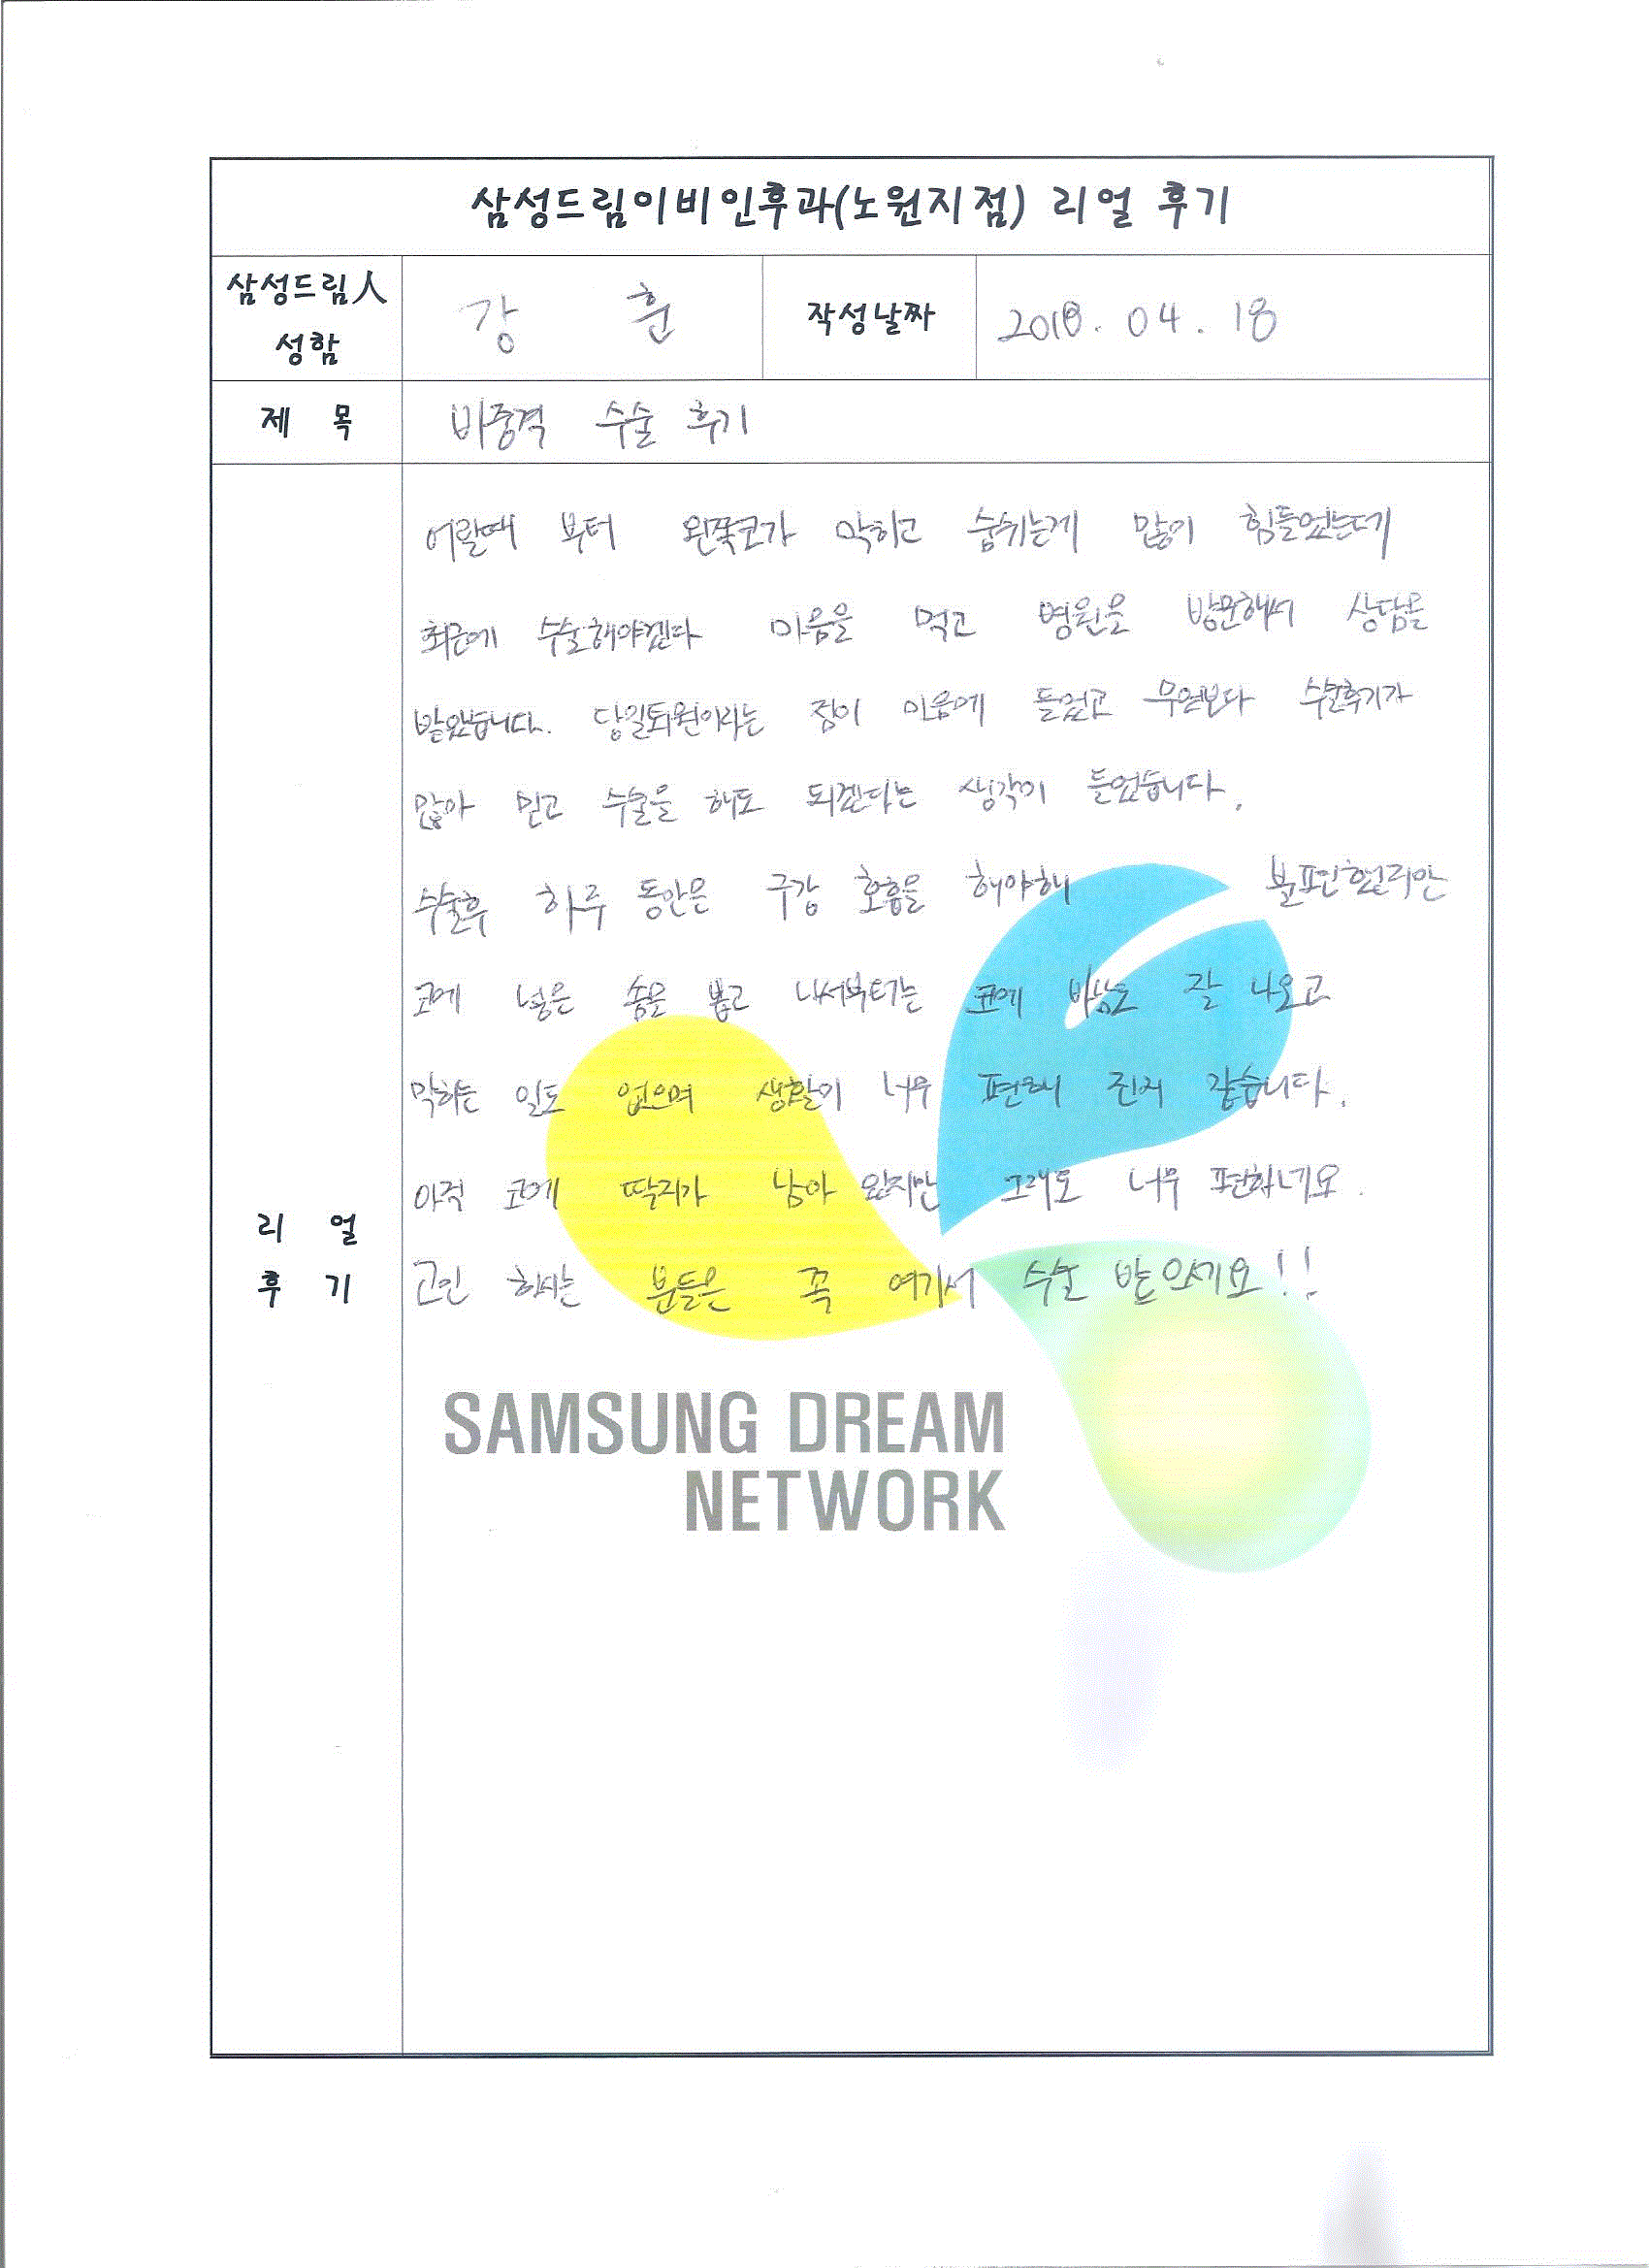 삼성드림이비인후과(노원지점) 리얼 후기
삼성드림人 성함
강 훈
작성날짜
2018. 04. 18
제 목
비중격 수술 후기
어릴때 부터 왼쪽코가 막히고 숨쉬는게 많이 힘들었는데
최근에 수술해야겠다 마음을 먹고 병원을 방문해서 상담을
받았습니다. 당일퇴원이라는 점이 마음에 들었고 무엇보다 수술후기가
많아 믿고 수술을 해도 되겠다는 생각이 들었습니다.
수술후 하루 동안은 구강 호흡을 해야해 불편했지만
코에 넣은 솜을 뽑고 나서부터는 코에 바람도 잘 나오고
막히는 일도 없으며 생활이 너무 편해 진거 같습니다.
아직 코에 딱지가 남아 있지만 그래도 너무 편하네요.
고민 하시는 분들은 꼭 여기서 수술 받으세요!!
리 얼
후 기
SAMSUNG DREAM
NETWORK